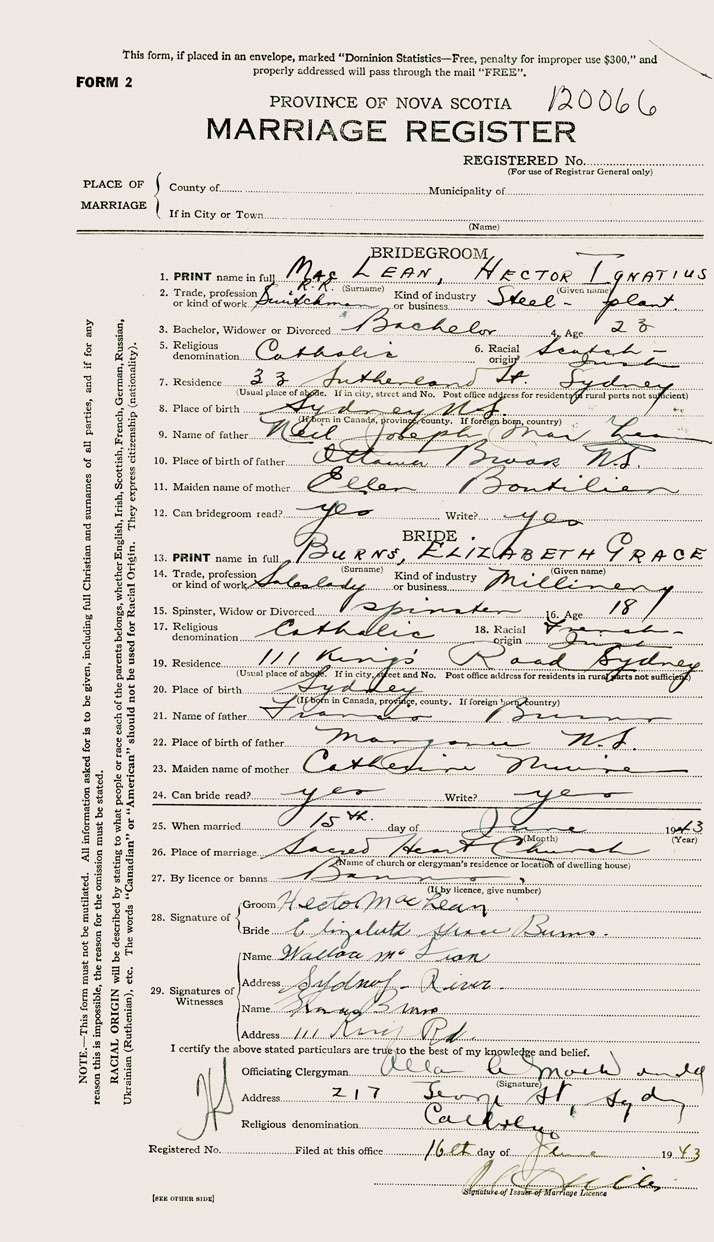 This form, if placed in an envelope, marked "Dominion Statistics—Free, penalty for improper use $300," and
properly addressed will pass through the mail "FREE".
FORM 2
PROVINCE OF NOVA SCOTIA 120066
MARRIAGE REGISTER
REGISTERED No.
(For use of Registrar General only)
PLACE OF MARRIAGE
County of Municipality of
If in City or Town
(Name)
BRIDEGROOM
1. PRINT name in full MacLEAN, HECTOR IGNATIUS
(Surname) (Given name)
2. Trade, profession or kind of work R.R. Switchman Kind of industry or business Steel - plant.
3. Bachelor, Widower or Divorced Bachelor 4. Age 23
5. Religious denomination Catholic 6. Racial origin Scotch - Irish
7. Residence 33 Sutherland St. Sydney
(Usual place of abode. If in city, street and No. Post office address for residents in rural parts not sufficient)
8. Place of birth Sydney N.S.
(If born in Canada, province, county. If foreign born, country)
9. Name of father Neil Joseph MacLean
10. Place of birth of father Ottawa Brook N.S.
11. Maiden name of mother Ellen Boutilier
12. Can bridegroom read? yes Write? yes
BRIDE
13. PRINT name in full BURNS, ELIZABETH GRACE
(Surname) (Given name)
14. Trade, profession or kind of work Saleslady Kind of industry or business Millinery
15. Spinster, Widow or Divorced spinster 16. Age 18
17. Religious denomination Catholic 18. Racial origin French - Irish
19. Residence 111 King's Road Sydney
(Usual place of abode. If in city, street and No. Post office address for residents in rural parts not sufficient)
20. Place of birth Sydney
(If born in Canada, province, county. If foreign born, country)
21. Name of father Francis Burns
22. Place of birth of father Margaree N.S.
23. Maiden name of mother Catherine
24. Can bride read? yes Write? yes
25. When married 15th. day of June 1943
(Month) (Year)
26. Place of marriage Sacred Heart Church
(Name of church or clergyman's residence or location of dwelling house)
27. By licence or banns Banns
(If by licence, give number)
28. Signature of
Groom Hector MacLean
Bride Elizabeth Grace Burns.
29. Signatures of Witnesses
Name
Address Sydney - River.
Name Burns
Address 111 King Rd.
I certify the above stated particulars are true to the best of my knowledge and belief.
Officiating Clergyman
(Signature)
Address 217 George St, Sydney
Religious denomination Catholic
Registered No. Filed at this office 16th day of June 1943
Signature of Issuer of Marriage Licence
[SEE OTHER SIDE]
NOTE.—This form must not be mutilated. All information asked for is to be given, including full Christian and surnames of all parties, and if for any
reason this is impossible, the reason for the omission must be stated.
RACIAL ORIGIN will be described by stating to what people or race each of the parents belongs, whether English, Irish, Scottish, French, German, Russian,
Ukrainian (Ruthenian), etc. The words "Canadian" or "American" should not be used for Racial Origin. They express citizenship (nationality).